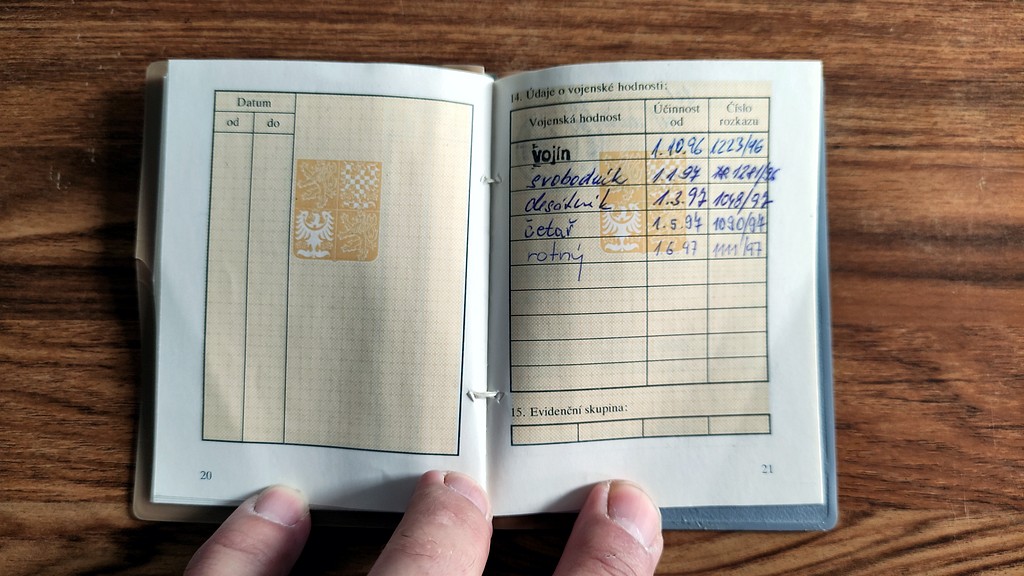 Datum
od do
20
14. Údaje o vojenské hodnosti:
Vojenská hodnost Účinnost od Číslo rozkazu
vojín 1.10.96 1223/96
svobodník 1.1.97 1281/96
desátník 1.3.97 1048/97
četař 1.5.97 1090/97
rotný 1.6.97 1111/97
15. Evidenční skupina:
21